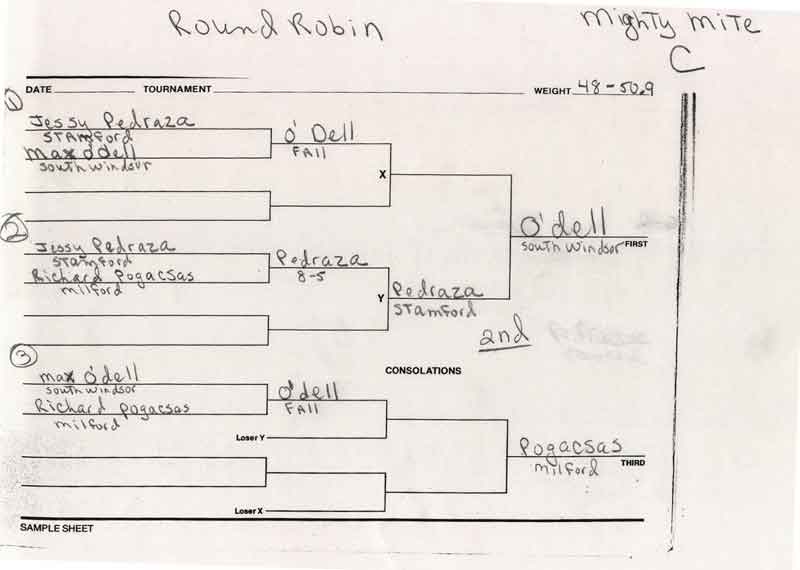 Round Robin
Mighty Mite
C
DATE TOURNAMENT WEIGHT 48-50.9
1
Jessy Pedraza
STAmford
Max O'dell
South Windsor
O'Dell
FAll
X
2
Jessy Pedraza
STAmford
Richard Pogacsas
milford
Pedraza
8-5
Y
Pedraza
STAmford
O'dell
South Windsor FIRST
and
3
max O'dell
South Windsor
Richard pogacsas
milford
O'dell
FAll
CONSOLATIONS
Loser Y
Loser X
Pogacsas
milford THIRD
SAMPLE SHEET